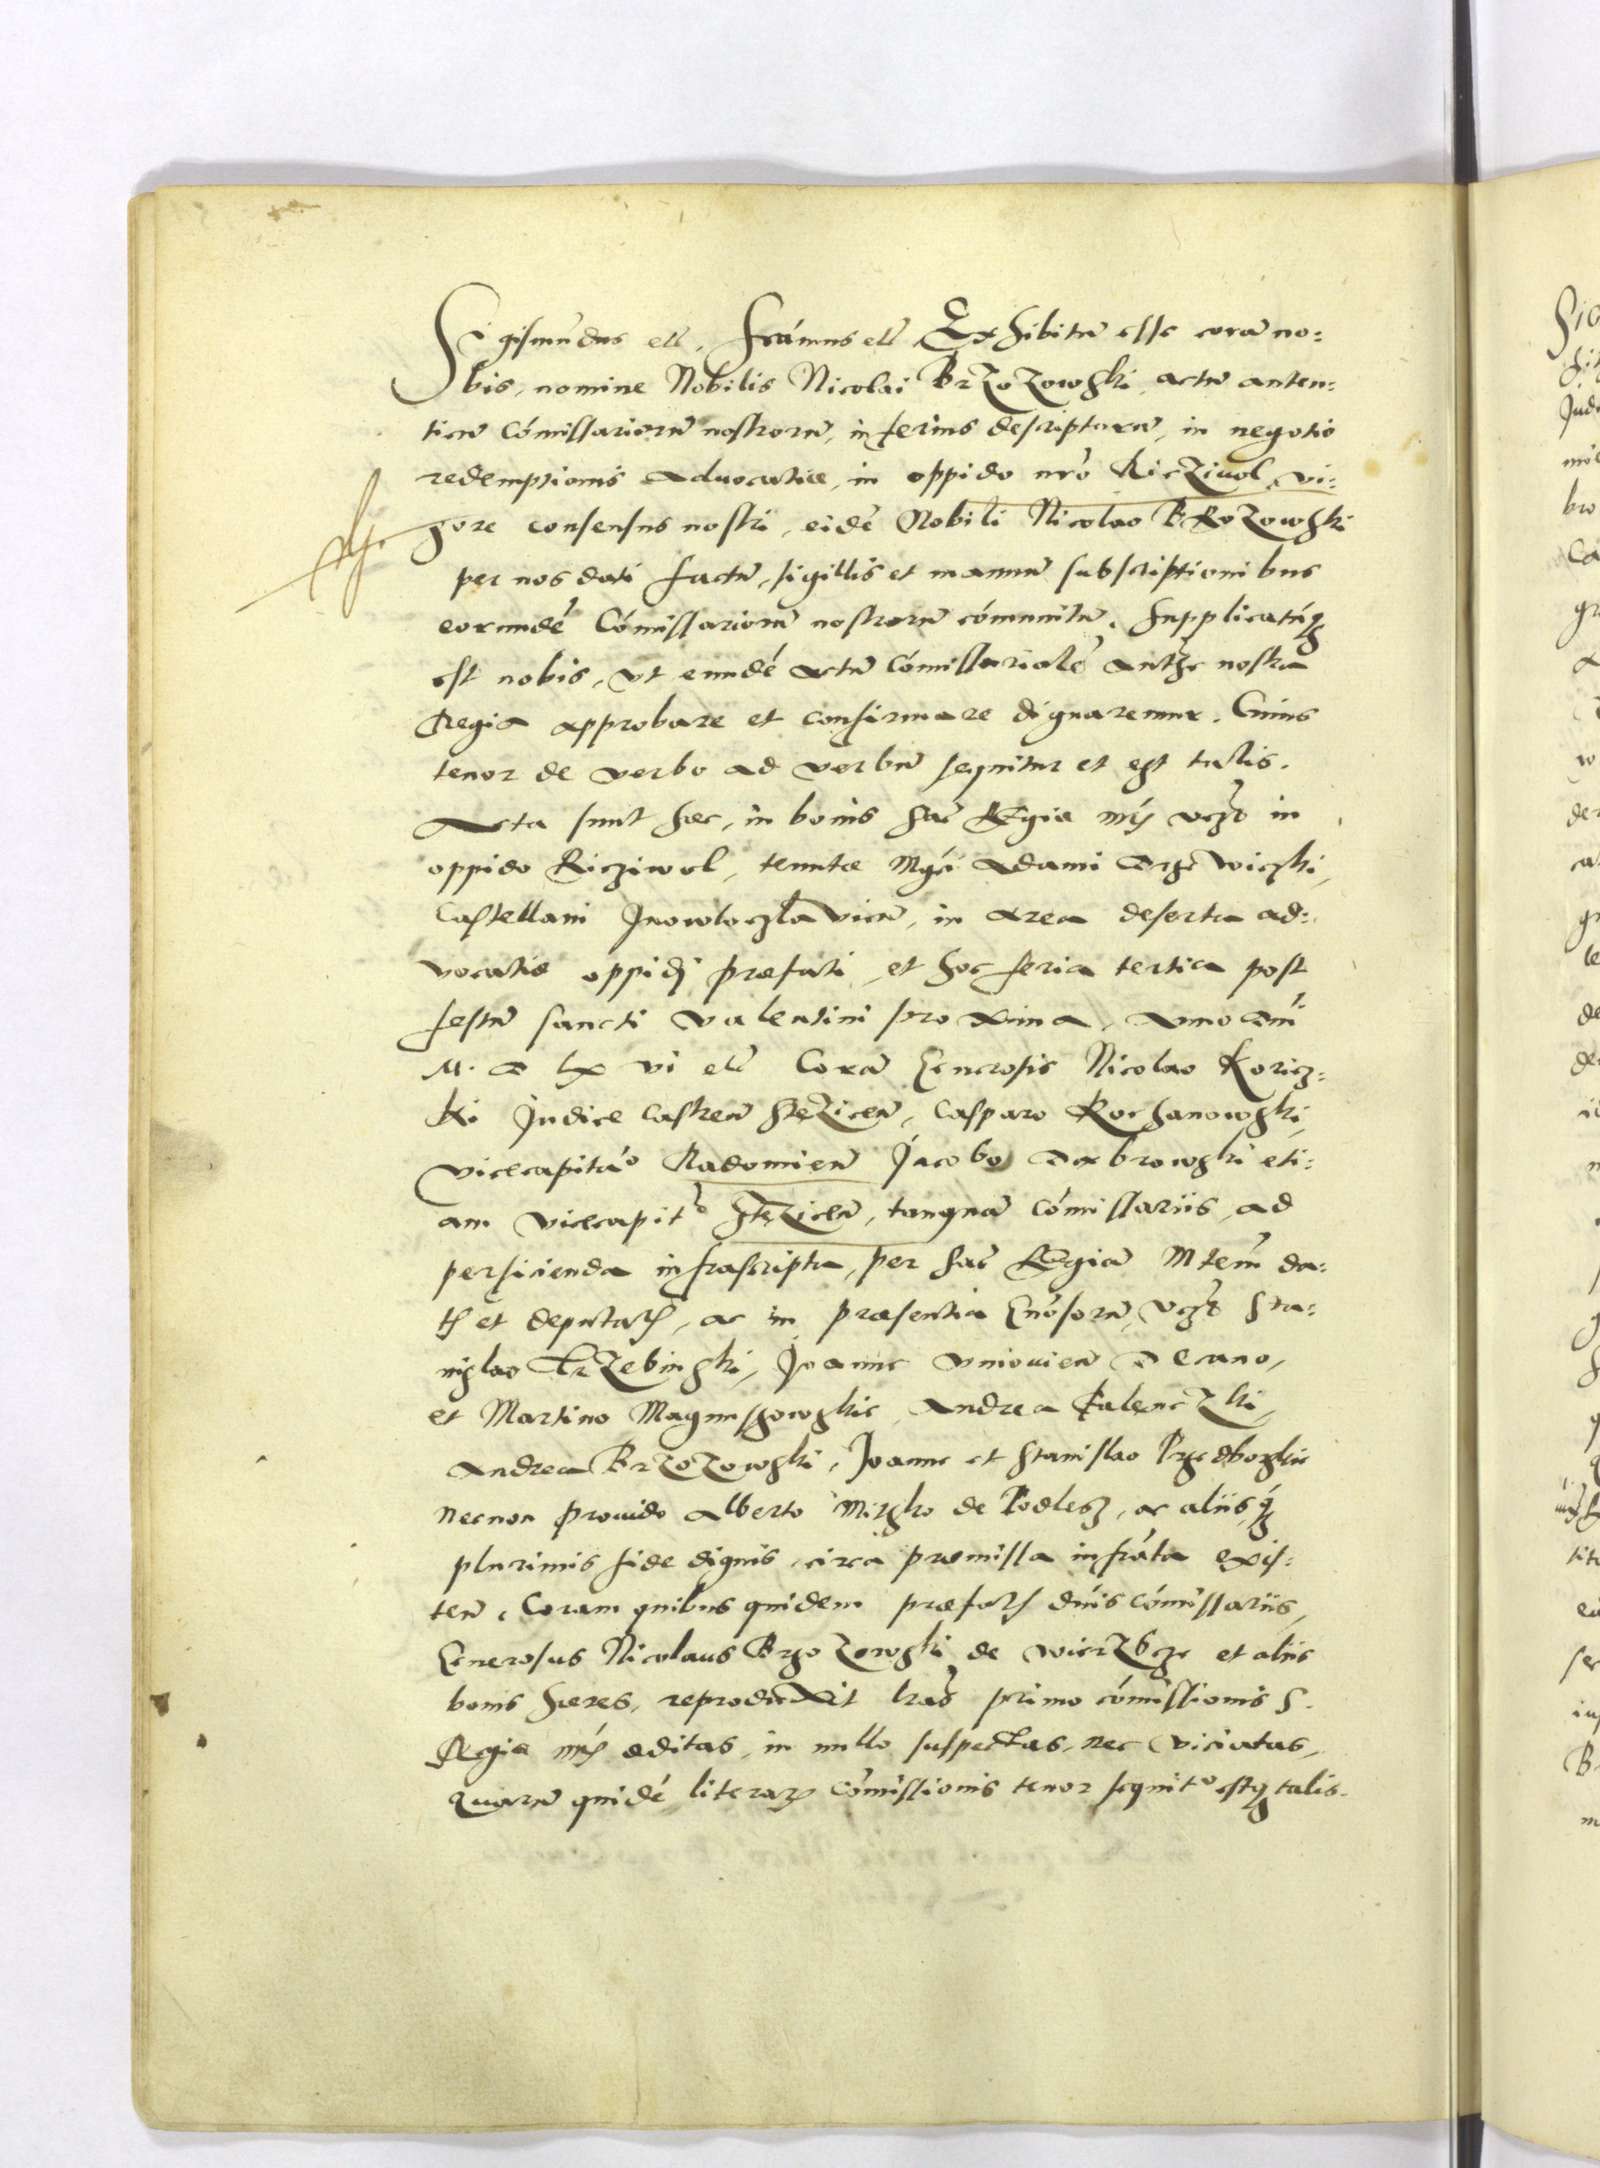 Sigismundus etc. Fcámus etc Exhibitũ esse corã no:
bis, nomine Nobilis Nicolai BrZoZowski actũ auten:
ticũ cómissariorũ nostrorũ, inferius descriptorũ, in negotio
redemptionis Advocatiæ, in oppido nr̃o RicZivol, vi:
gore consensus nostri, eidẽ Nobili Nicolao BRoZowski
per nos dati factũ, sigillis et manuũ subscriptionibus
eorundẽ Cómissariorũ nostrorũ cómunitũ. Supplicatúq̃
est nobis, vt eundé actũ Cómissarialẽ autħe nostra
Regia approbare et confirmare dignaremur. Cuius
tenor de verbo ad verbũ sequitur et est talis.
Acta sunt hæc, in bonis Sac̃ Regiæ mt̃is vcz̃ in
oppido Ricziwol, tenutæ Mgći Adami
Castellani Inowloczlavieñ, in area deserta ad:
vocatiæ oppidi præfati et hoc feria tertia post
festũ sancti Valentini proxima, Anno Dnĩ
M. D Lx vi etc Corã Generosis Nicolao Koricz:
ki Judice Castreñ StęZiceñ, Casparo Kochanowski,
vicecapitá⁰ Radomieñ Jacobo Dabrowski eti:
am vicecapit⁰ StęZiceñ, tanquã Cómissariis, ad
perficienda infrascripta, per Sac̃ Regiã Mtem̃ da:
tis et deputatis, ac in præsentia Gnósorũ, vcz̃ Sta:
nislao TrZebinski, Joanne Vniovieñ Decano,
et Martino Magnuszowskie, Andrea
Andrea BrZoZowski, Joanne et Stanislao
Necnon provido Alberto Mirzko de Podlesz, ac aliis q́
plurimis fide dignis, circa præmissa infráta exis:
teñ, Coram quibus quidem præfatis dńis cómissariis,
Generosus Nicolaus BrzoZowski de WierZbcze et aliis
bonis hæres, reproduxit lrás primo cómissionis S.
Regiæ mt̃is æditas, in nullo suspectas, nec viciatas,
Quarũ quidé literarꝝ Cómissionis tenor sequit⁰ estq̃ talis.